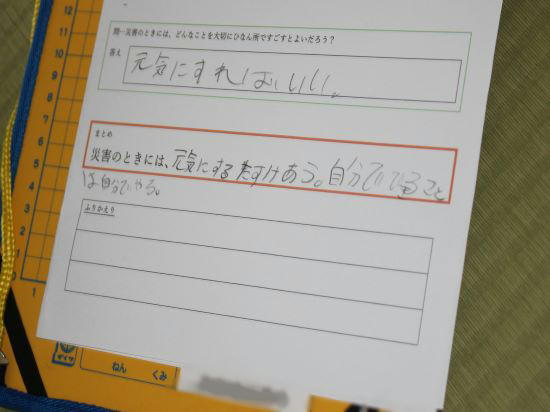 問…災害のときには、どんなことを大切にひなん所ですごすとよいだろう？
答え
元気にすればいい。
まとめ
災害のときには、元気にする たすけあう。自分でできること
は自分でやる。
ふりかえり
ねん くみ
12
10
9
8
7
6
5
4
3
2
1
0
1